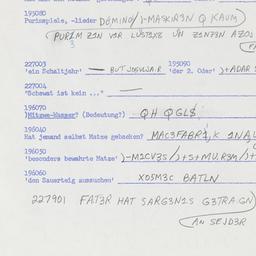 193080
Purimspiele, -lieder DOMINO/)-MASKIR3N Q KAUM)
(PURIM Z1N V1R LUST3K3 UN Z1NZ3N A2OJ
3
227003 195090
'ein Schaltjahr' — BUT JOGUJAR 'der 2. Oder' )+ADAR
227004
"Schewat ist kein ..." —
196070
)Mitzen-Wasser? (Bedeutung?) QH QGLS
196040
Hat jemand selbst Matze gebacken? MAC3FABR1K
196050
'besonders bewahrte Matze' )-M1CV3S/)+S+MUR3M/)+
196060
'den Sauerteig aussuchen' XOSM3C BATLN
227901 FAT3R HAT SARG3N1S G3TRAGN
(AN SEJD3R